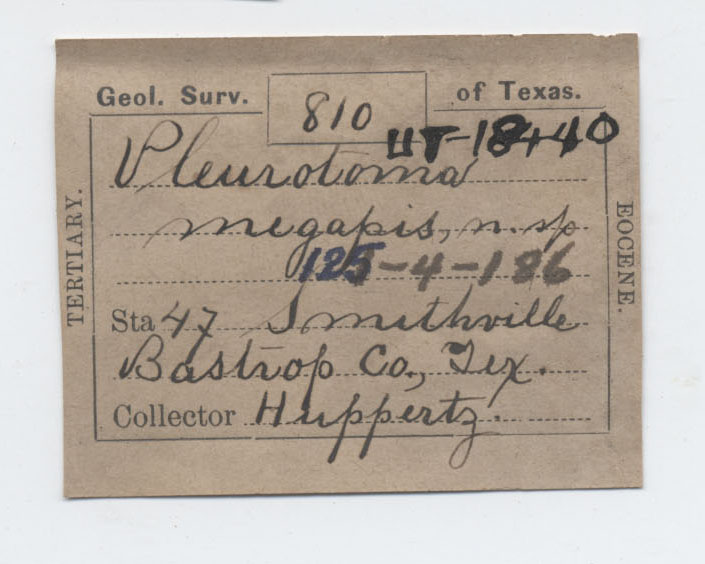 Geol. Surv. 810 of Texas.
UT-18440
Pleurotoma
megapis, n. sp
125-4-186
Sta 47 Smithville
Bastrop Co., Tex.
Collector Huppertz.
TERTIARY.
EOCENE.